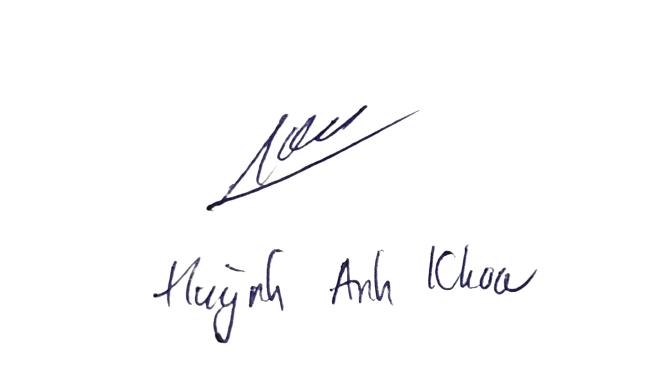 Huỳnh Anh Khoa